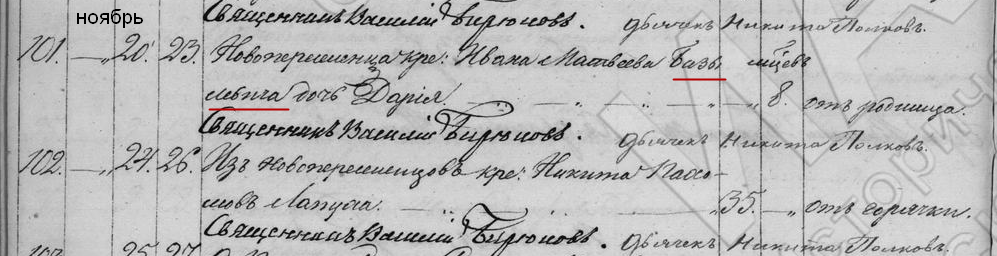 ноябрь
Священникъ Василій Бирюковъ. Дьячекъ Никита Полковъ.
101. — „ 20. 23. Новопереселенца кре: Ивана Матвеева Базы мѣсцевъ
левича дочь Дарія. — „ — „ — „ 8. отъ родимца.
Священникъ Василій Бирюковъ. Дьячекъ Никита Полковъ.
102. — „ 24. 26. Изъ новопереселенцовъ кре: Никита Пахо-
мовъ Лапуха. — „ 35. — „ отъ горячки.
Священникъ Василій Бирюковъ. Дьячекъ Никита Полковъ.
103. 25. 27.